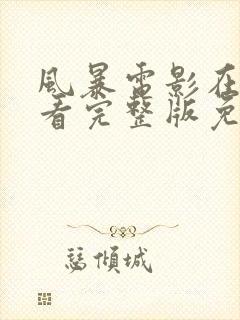 風暴電影在
看完整版免
慈傾城